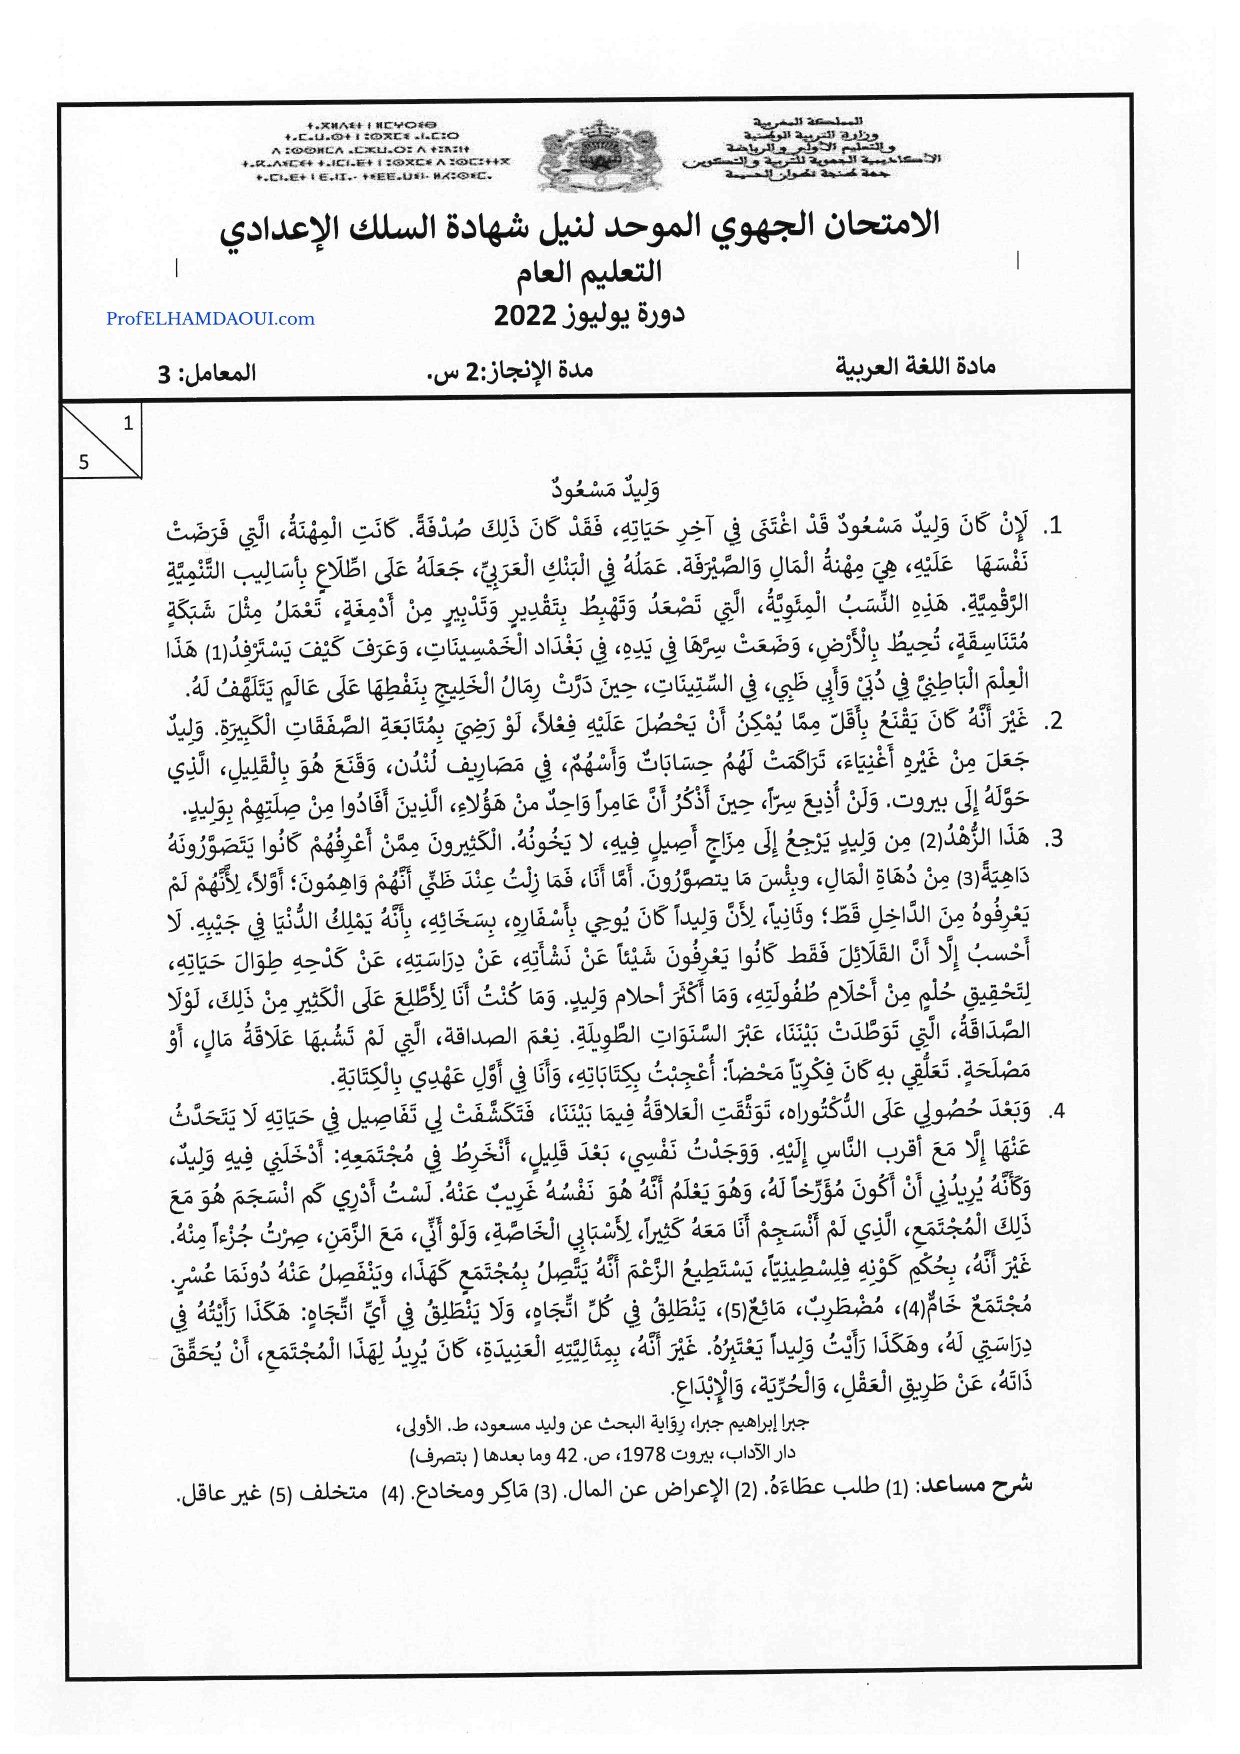 المملكة المغربية
وزارة التربية الوطنية
والتعليم الأولي والرياضة
الأكاديمية الجهوية للتربية والتكوين
جهة طنجة تطوان الحسيمة
الامتحان الجهوي الموحد لنيل شهادة السلك الإعدادي
التعليم العام
دورة يوليوز 2022
ProfELHAMDAOUI.com
مادة اللغة العربية
مدة الإنجاز:2 س.
المعامل: 3
1
5
وَلِيدٌ مَسْعُودٌ
1. لَإِنْ كَانَ وَلِيدٌ مَسْعُودٌ قَدْ اغْتَنَى فِي آخِرِ حَيَاتِهِ، فَقَدْ كَانَ ذَلِكَ صُدْفَةً. كَانَتِ الْمِهْنَةُ، الَّتِي فَرَضَتْ
نَفْسَهَا عَلَيْهِ، هِيَ مِهْنةُ الْمَالِ وَالصَّيْرَفَة. عَمَلُهُ فِي الْبَنْكِ الْعَرَبِيِّ، جَعَلَهُ عَلَى اطِّلَاعٍ بِأَسَالِيب التَّنْمِيَّةِ
الرَّقْمِيَّةِ. هَذِهِ النِّسَبُ الْمِئَوِيَّةُ، الَّتِي تَصْعَدُ وَتَهْبِطُ بِتَقْدِيرٍ وَتَدْبِيرٍ مِنْ أَدْمِغَةٍ، تَعْمَلُ مِثْلَ شَبَكَةٍ
مُتَنَاسِقَةٍ، تُحِيطُ بِالْأَرْضِ، وَضَعَتْ سِرَّهَا فِي يَدِهِ، فِي بَغْدَاد الْخَمْسِينَاتِ، وَعَرَفَ كَيْفَ يَسْتَرْفِدُ(1) هَذَا
الْعِلْمَ الْبَاطِنِيَّ فِي دُبَيْ وَأَبِي ظَبِي، فِي السِّتِينَاتِ، حِينَ دَرَّتْ رِمَالُ الْخَلِيجِ بِنَفْطِهَا عَلَى عَالَمٍ يَتَلَهَّفُ لَهُ.
2. غَيْرَ أَنَّهُ كَانَ يَقْنَعُ بِأَقَلّ مِمَّا يُمْكِنُ أَنْ يَحْصُلَ عَلَيْهِ فِعْلاً، لَوْ رَضِيَ بِمُتَابَعَةِ الصَّفَقَاتِ الْكَبِيرَةِ. وَلِيدٌ
جَعَلَ مِنْ غَيْرِهِ أَغْنِيَاءَ، تَرَاكَمَتْ لَهُمْ حِسَابَاتٌ وَأَسْهُمٌ، فِي مَصَاريف لُنْدُن، وَقَنَعَ هُوَ بِالْقَلِيلِ، الَّذِي
حَوَّلَهُ إِلَى بيروت. وَلَنْ أُذِيعَ سِرّاً، حِينَ أَذْكُرُ أَنَّ عَامِراً وَاحِدٌ منْ هَؤُلاءِ، الَّذِينَ أَفَادُوا مِنْ صِلَتِهِمْ بِوَلِيدٍ.
3. هَذَا الزُّهْدُ(2) مِن وَلِيدٍ يَرْجِعُ إِلَى مِزَاجٍ أَصِيلٍ فِيهِ، لا يَخُونُهُ. الْكَثِيرونَ مِمَّنْ أَعْرِفُهُمْ كَانُوا يَتَصَوَّرُونَهُ
دَاهِيَةً(3) مِنْ دُهَاةِ الْمَالِ، وبِئْسَ مَا يتصوَّرُونَ. أَمَّا أَنَا، فَمَا زِلْتُ عِنْدَ ظَنِّي أَنَّهُمْ وَاهِمُونَ؛ أَوَّلاً، لِأَنَّهُمْ لَمْ
يَعْرِفُوهُ مِنَ الدَّاخِلِ قَطّ؛ وثَانِياً، لِأَنَّ وَلِيداً كَانَ يُوحِي بِأَسْفَارِهِ، بِسَخَائِهِ، بِأَنَّهُ يَمْلِكُ الدُّنْيَا فِي جَيْبِهِ. لَا
أَحْسبُ إِلَّا أَنَّ القَلَائِلَ فَقَط كَانُوا يَعْرِفُونَ شَيْئاً عَنْ نَشْأَتِهِ، عَنْ دِرَاسَتِهِ، عَنْ كَدْحِهِ طِوَالَ حَيَاتِهِ،
لِتَحْقِيقِ حُلْمٍ مِنْ أَحْلَامِ طُفُولَتِهِ، وَمَا أَكْثَرَ أحلام وَلِيدٍ. وَمَا كُنْتُ أَنَا لِأَطَّلِعَ عَلَى الْكَثِيرِ مِنْ ذَلِكَ، لَوْلَا
الصَّدَاقَةُ، الَّتِي تَوَطَّدَتْ بَيْنَنَا، عَبْرَ السَّنَوَاتِ الطَّوِيلَةِ. نِعْمَ الصداقة، الَّتِي لَمْ تَشُبهَا عَلَاقَةُ مَالٍ، أَوْ
مَصْلَحَةٍ. تَعَلُّقِي بِهِ كَانَ فِكْرِيّاً مَحْضاً: أُعْجِبْتُ بِكِتَابَاتِهِ، وَأَنَا فِي أَوَّلِ عَهْدِي بِالْكِتَابَةِ.
4. وَبَعْدَ حُصُولِي عَلَى الدُّكْتُوراه، تَوَثَّقَتِ الْعَلاقَةُ فِيمَا بَيْنَنَا، فَتَكَشَّفَتْ لِي تَفَاصِيل فِي حَيَاتِهِ لَا يَتَحَدَّثُ
عَنْهَا إِلَّا مَعَ أقرب النَّاسِ إِلَيْهِ. وَوَجَدْتُ نَفْسِي، بَعْدَ قَلِيلٍ، أَنْخَرِطُ فِي مُجْتَمَعِهِ: أَدْخَلَنِي فِيهِ وَلِيدٌ،
وَكَأَنَّهُ يُرِيدُنِي أَنْ أَكُونَ مُؤَرِّخاً لَهُ، وَهُوَ يَعْلَمُ أَنَّهُ هُوَ نَفْسُهُ غَرِيبٌ عَنْهُ. لَسْتُ أَدْرِي كَم انْسَجَمَ هُوَ مَعَ
ذَلِكَ الْمُجْتَمَعِ، الَّذِي لَمْ أَنْسَجِمْ أَنَا مَعَهُ كَثِيراً، لِأَسْبَابِي الْخَاصَّةِ، وَلَوْ أَنِّي، مَعَ الزَّمَنِ، صِرْتُ جُزْءاً مِنْهُ.
غَيْرَ أَنَّهُ، بِحُكْمِ كَوْنِهِ فِلِسْطِينِيّاً، يَسْتَطِيعُ الزَّعْمَ أَنَّهُ يَتَّصِلُ بِمُجْتَمَعٍ كَهَذَا، ويَنْفَصِلُ عَنْهُ دُونَمَا عُسْرٍ.
مُجْتَمَعٌ خَامٌّ(4)، مُضْطَرِبٌ، مَائِعٌ(5)، يَنْطَلِقُ فِي كُلِّ اتِّجَاهٍ، وَلَا يَنْطَلِقُ فِي أَيِّ اتِّجَاهٍ: هَكَذَا رَأَيْتُهُ فِي
دِرَاسَتِي لَهُ، وهَكَذَا رَأَيْتُ وَلِيداً يَعْتَبِرُهُ. غَيْرَ أَنَّهُ، بِمِثَالِيَّتِهِ الْعَنِيدَةِ، كَانَ يُرِيدُ لِهَذَا الْمُجْتَمَعِ، أَنْ يُحَقِّقَ
ذَاتَهُ، عَنْ طَرِيقِ الْعَقْلِ، وَالْحُرِّيَة، وَالْإِبْدَاعِ.
جبرا إبراهيم جبرا، رِوَاية البحث عن وليد مسعود، ط. الأولى،
دار الآداب، بيروت 1978، ص. 42 وما بعدها ( بتصرف)
شرح مساعد: (1) طلب عطَاءَهُ. (2) الإعراض عن المال. (3) مَاكِر ومخادع. (4) متخلف (5) غير عاقل.